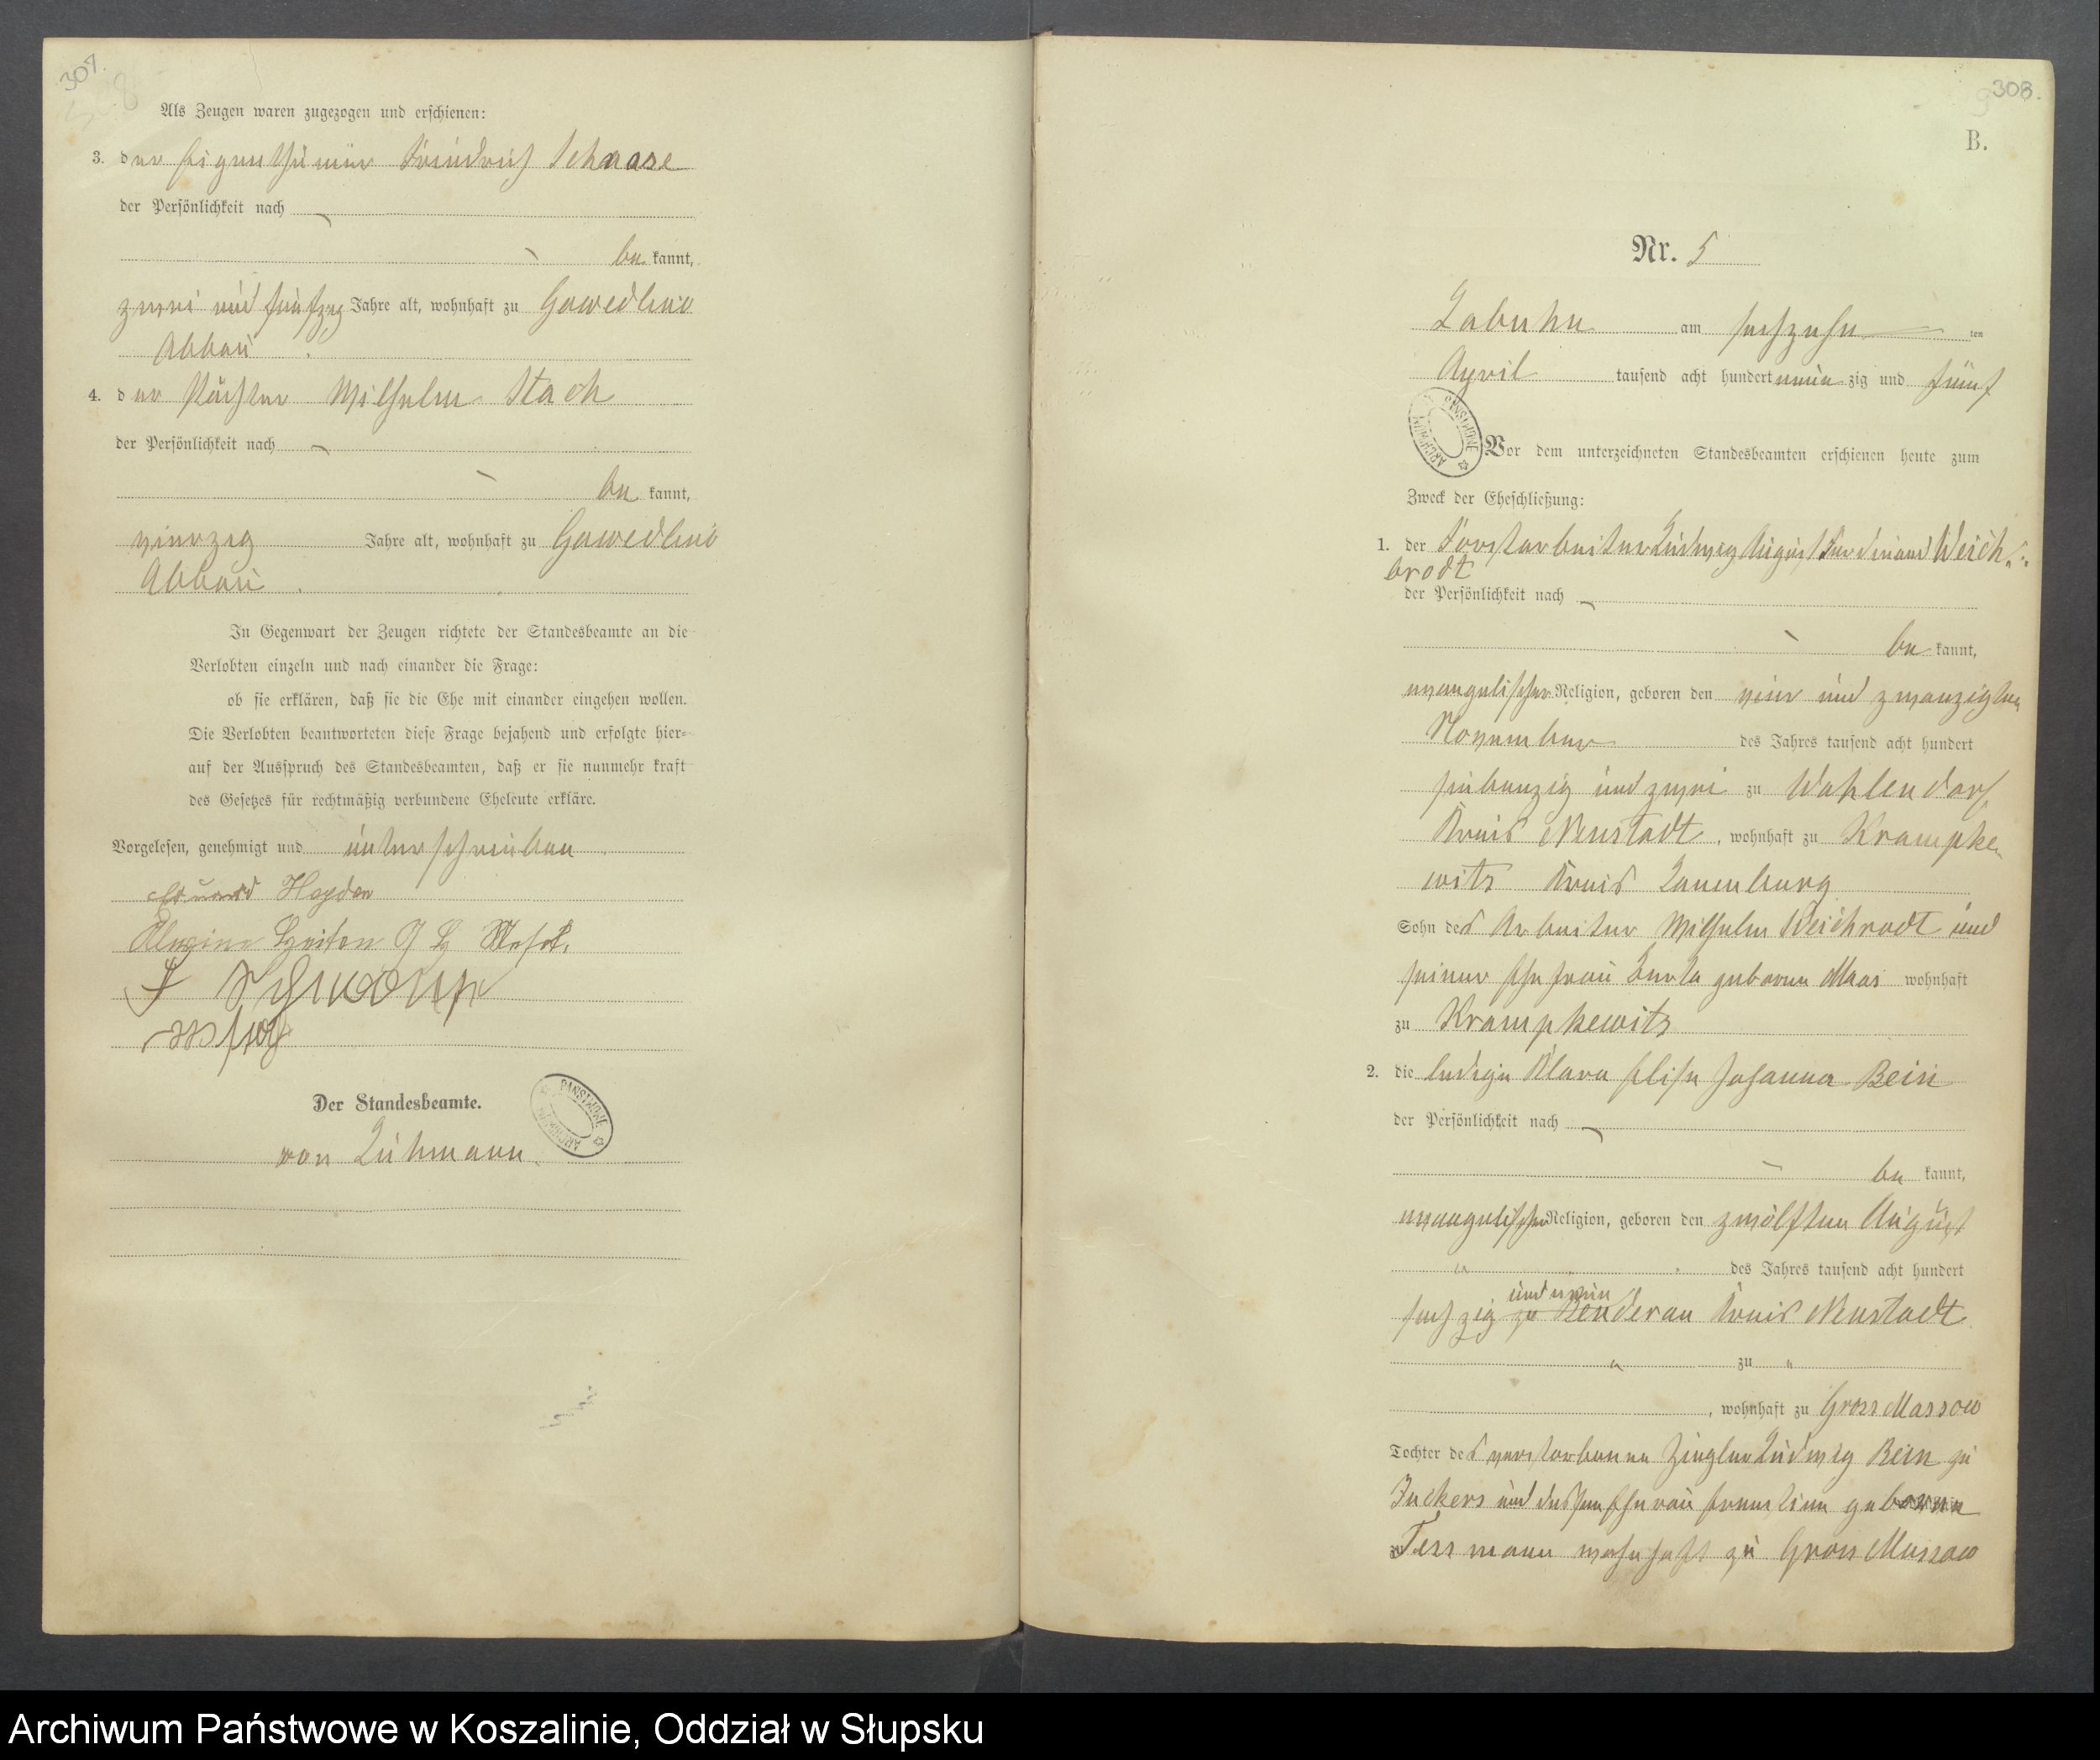 307.
Als Zeugen waren zugezogen und erschienen:
3. der Eigenthümer Friedrich Schaase
der Persönlichkeit nach
be kannt,
zwei und fünfzig Jahre alt, wohnhaft zu Gowedlino
Abbau.
4. der Pächter Wilhelm Stach
der Persönlichkeit nach
be kannt,
vierzig Jahre alt, wohnhaft zu Gowedlino
Abbau.
In Gegenwart der Zeugen richtete der Standesbeamte an die
Verlobten einzeln und nach einander die Frage:
ob sie erklären, daß sie die Ehe mit einander eingehen wollen.
Die Verlobten beantworteten diese Frage bejahend und erfolgte hier=
auf der Ausspruch des Standesbeamten, daß er sie nunmehr kraft
des Gesetzes für rechtmäßig verbundene Eheleute erkläre.
Vorgelesen, genehmigt und unterschrieben
Eduard Heyden
Der Standesbeamte.
von Lühmann.
ARCHIWUM PAŃSTWOWE
308.
B.
Nr. 5
Labuhn am sechzehn ten
April tausend acht hundert neun zig und fünf
ARCHIWUM PAŃSTWOWE
Vor dem unterzeichneten Standesbeamten erschienen heute zum
Zweck der Eheschließung:
1. der Forstarbeiter Ludwig August Ferdinand Weich=
brodt
der Persönlichkeit nach
be kannt,
evangelischer Religion, geboren den vier und zwanzigsten
November des Jahres tausend acht hundert
siebenzig und zwei zu Wahlendorf,
Kreis Neustadt, wohnhaft zu Krampke-
witz Kreis Lauenburg
Sohn des Arbeiter Wilhelm Weichrodt und
seiner Ehefrau Berta geborne Maas wohnhaft
zu Krampkewitz
2. die ledige Klara Elise Johanna Bein
der Persönlichkeit nach
be kannt,
evangelischer Religion, geboren den zwölften August
" des Jahres tausend acht hundert
und neun
sechzig zu Benderau Kreis Neustadt
" zu "
, wohnhaft zu Gross Massow
Tochter des verstorbenen Ziegler Ludwig Bein zu
Zuckers und dessen Ehefrau Ernestine geborne
Tessmann wohnhaft zu Gross Massow
Archiwum Państwowe w Koszalinie, Oddział w Słupsku